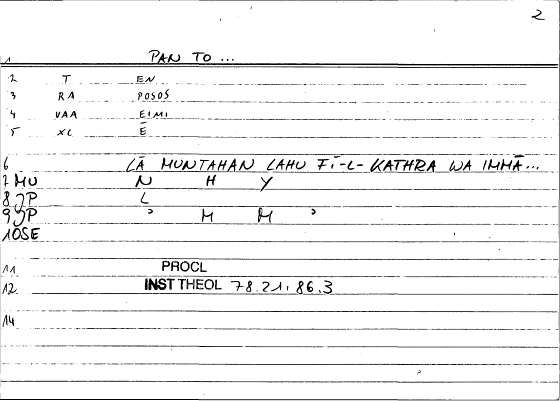 2
1 PAN TO ...
2 T EN
3 RA POSOS
4 VAA EIMI
5 XL Ē
6 LĀ MUNTAHAN LAHU FĪ-L-KATHRA WA IMMĀ...
7 MU N H Y
8 JP L
9 JP ʾ M M ʾ
10 SE
11 PROCL
12 INST THEOL 78.21: 86.3
14